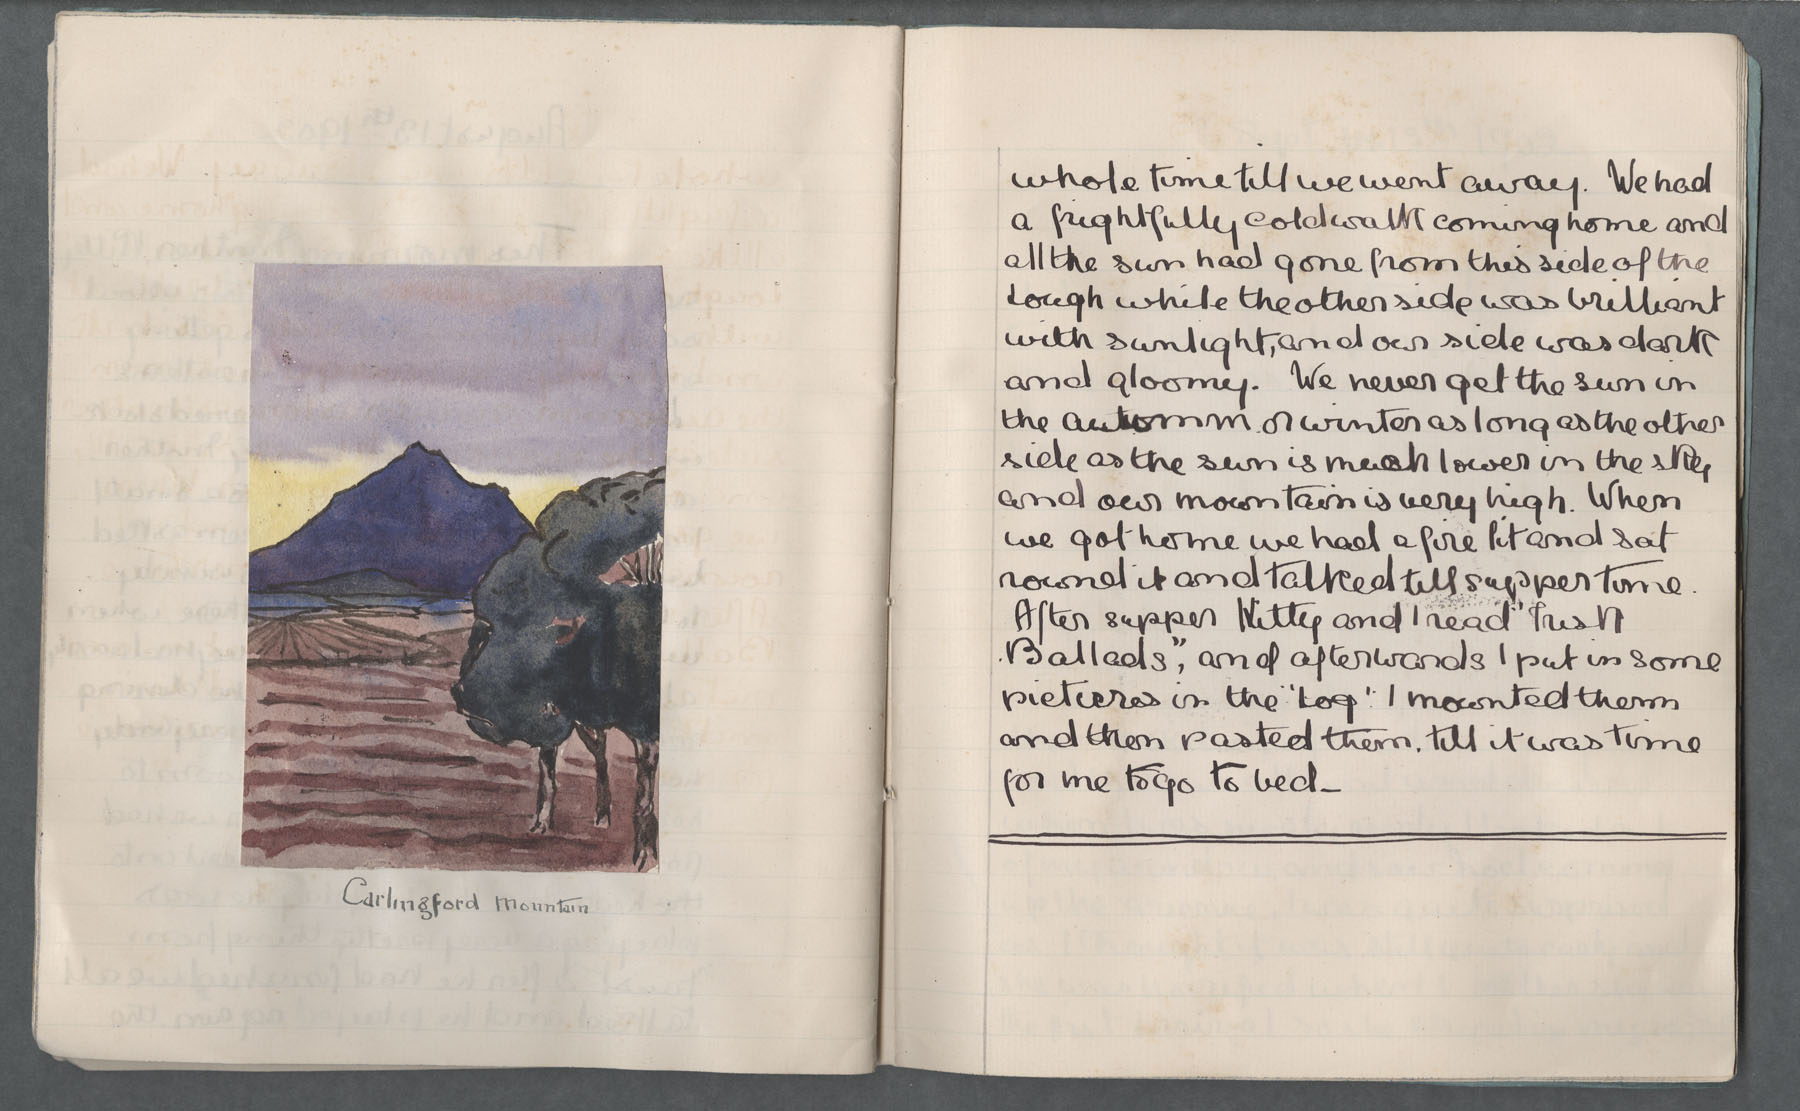 Carlingford Mountain
whole time till we went away. We had
a frightfully cold walk coming home and
all the sun had gone from this side of the
Lough while the other side was brilliant
with sunlight, and our side was dark
and gloomy. We never get the sun in
the autumn or winter as long as the other
side as the sun is much lower in the sky
and our mountain is very high. When
we got home we had a fire lit and sat
round it and talked till supper time.
After supper Kitty and I read "Irish
Ballads", and afterwards I put in some
pictures in the "Log". I mounted them
and then pasted them, till it was time
for me to go to bed_